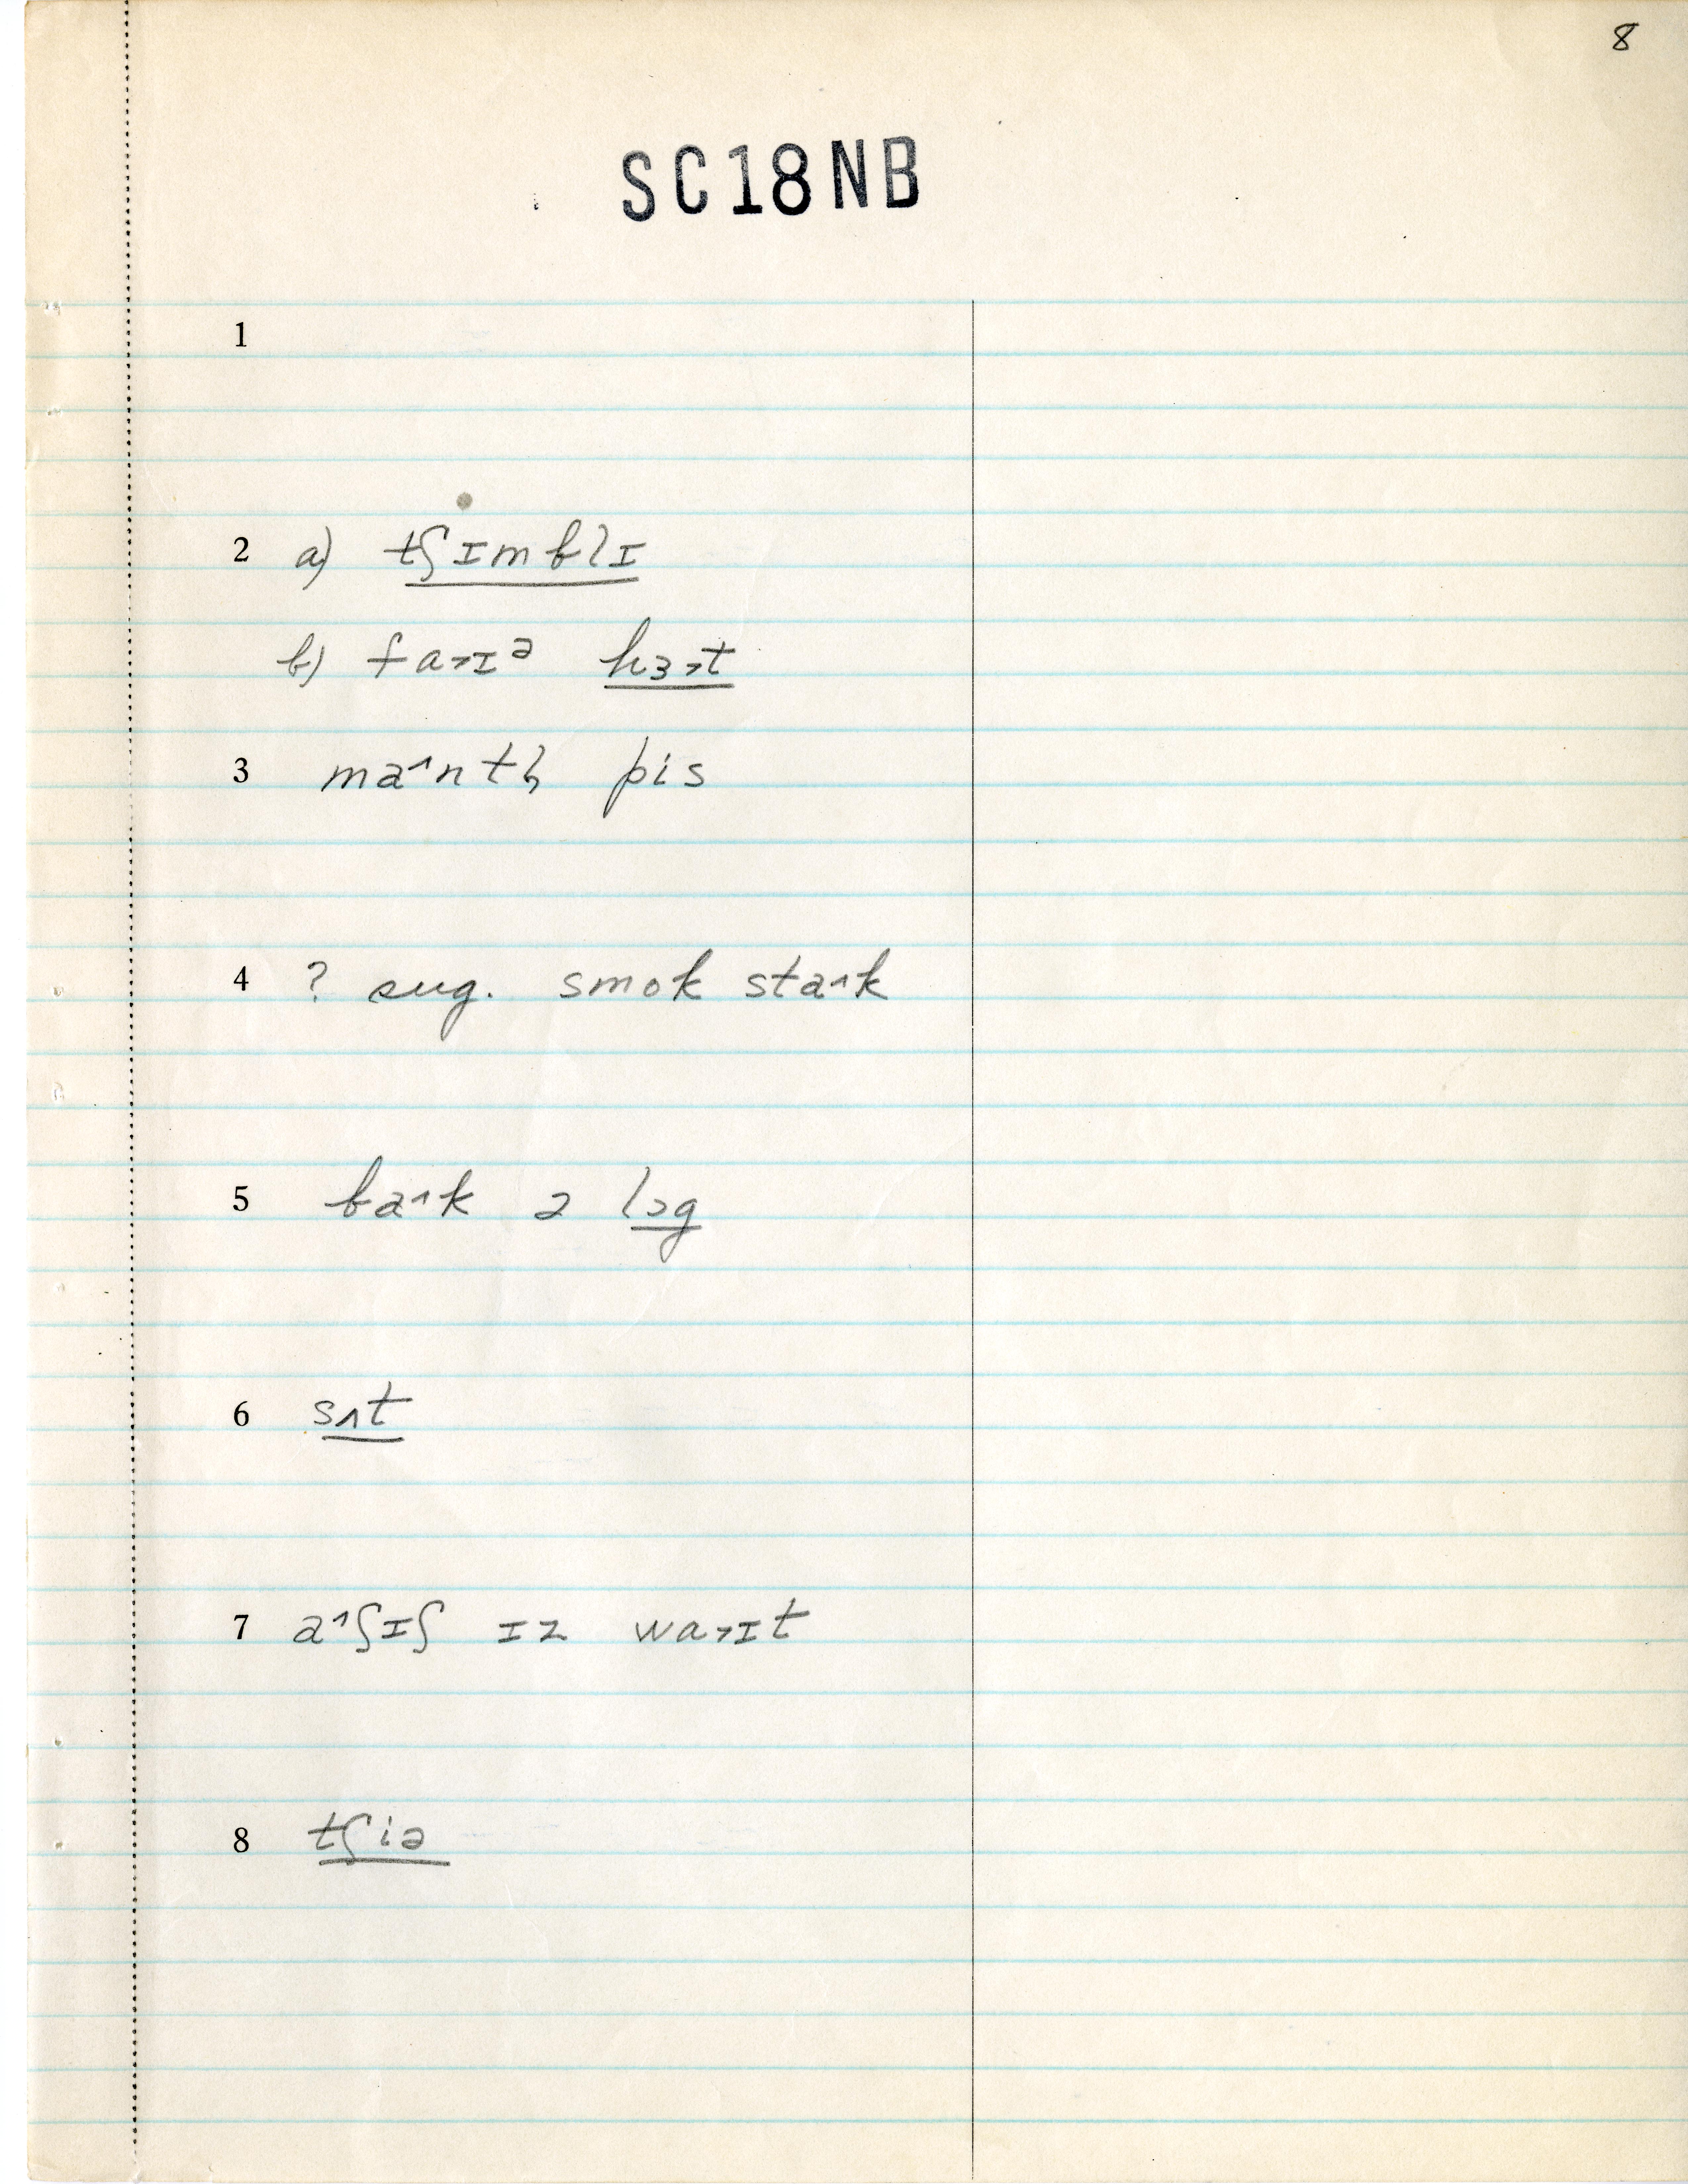 8
SC18NB
1
2 a) tʃɪmblɪ
b) fa˃ɪᵊ hɜ˃t
3 ma˄ntl̩ pis
4 ? sug. smok sta˄k
5 ba˄k ə lɔg
6 sʌt
7 a˄ʃɪʃ ɪz wa˃ɪt
8 tʃiə